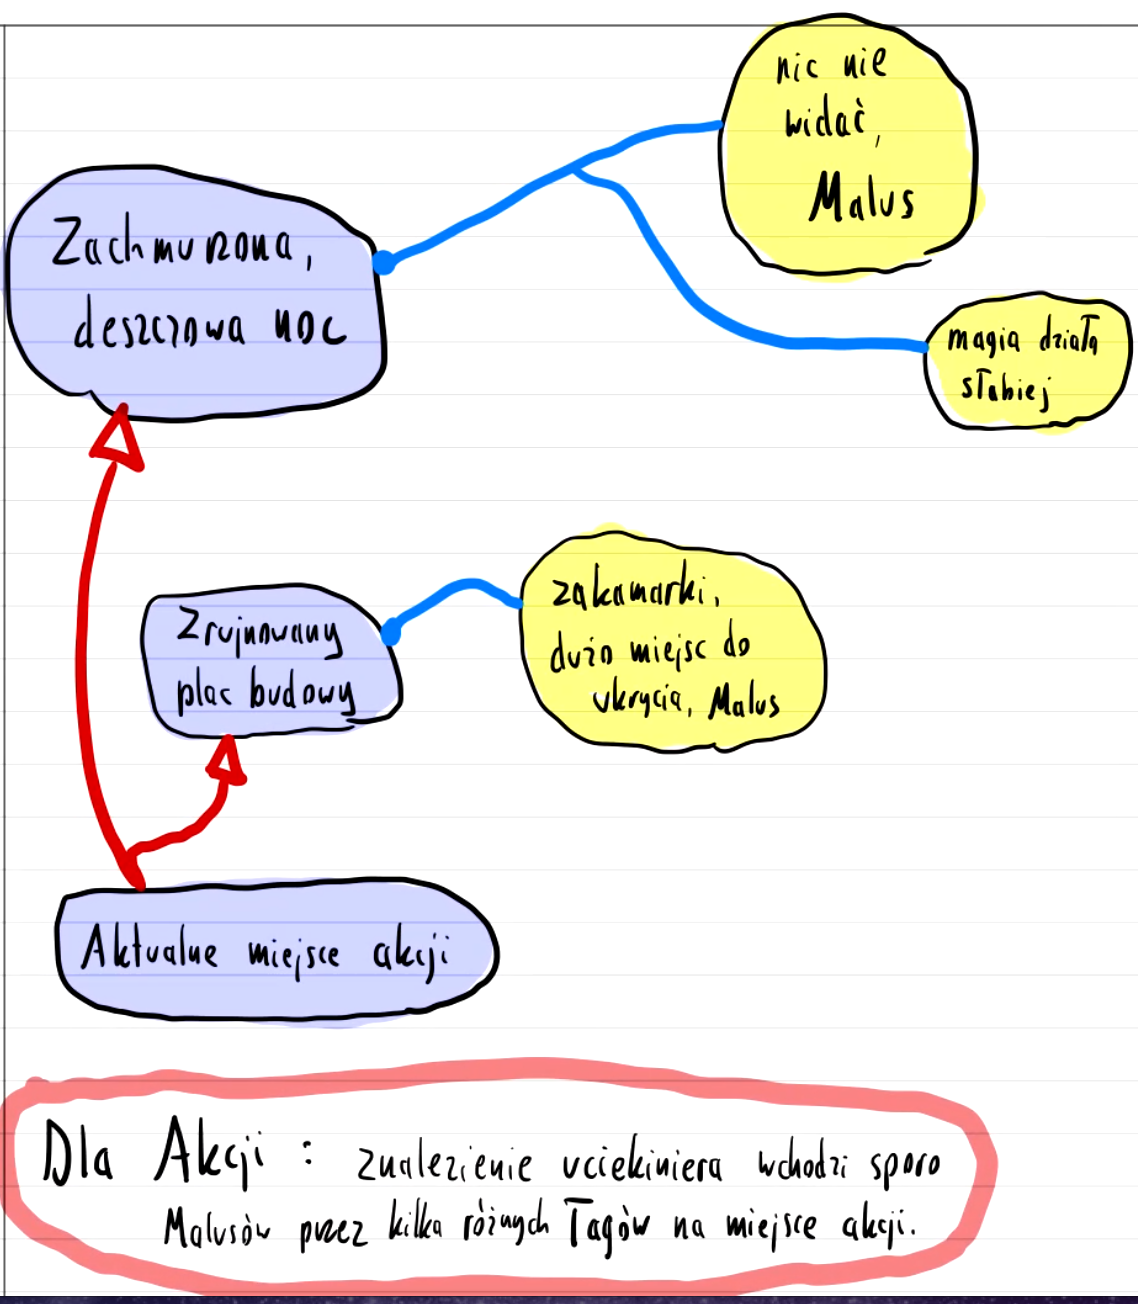 nic nie
widać,
Malus
Zachmurzona,
deszczowa noc
magia działa
słabiej
Zrujnowany
plac budowy
zakamarki,
dużo miejsc do
ukrycia, Malus
Aktualne miejsce akcji
Dla Akcji : znalezienie uciekiniera wchodzi sporo
Malusów przez kilka różnych Tagów na miejsce akcji.